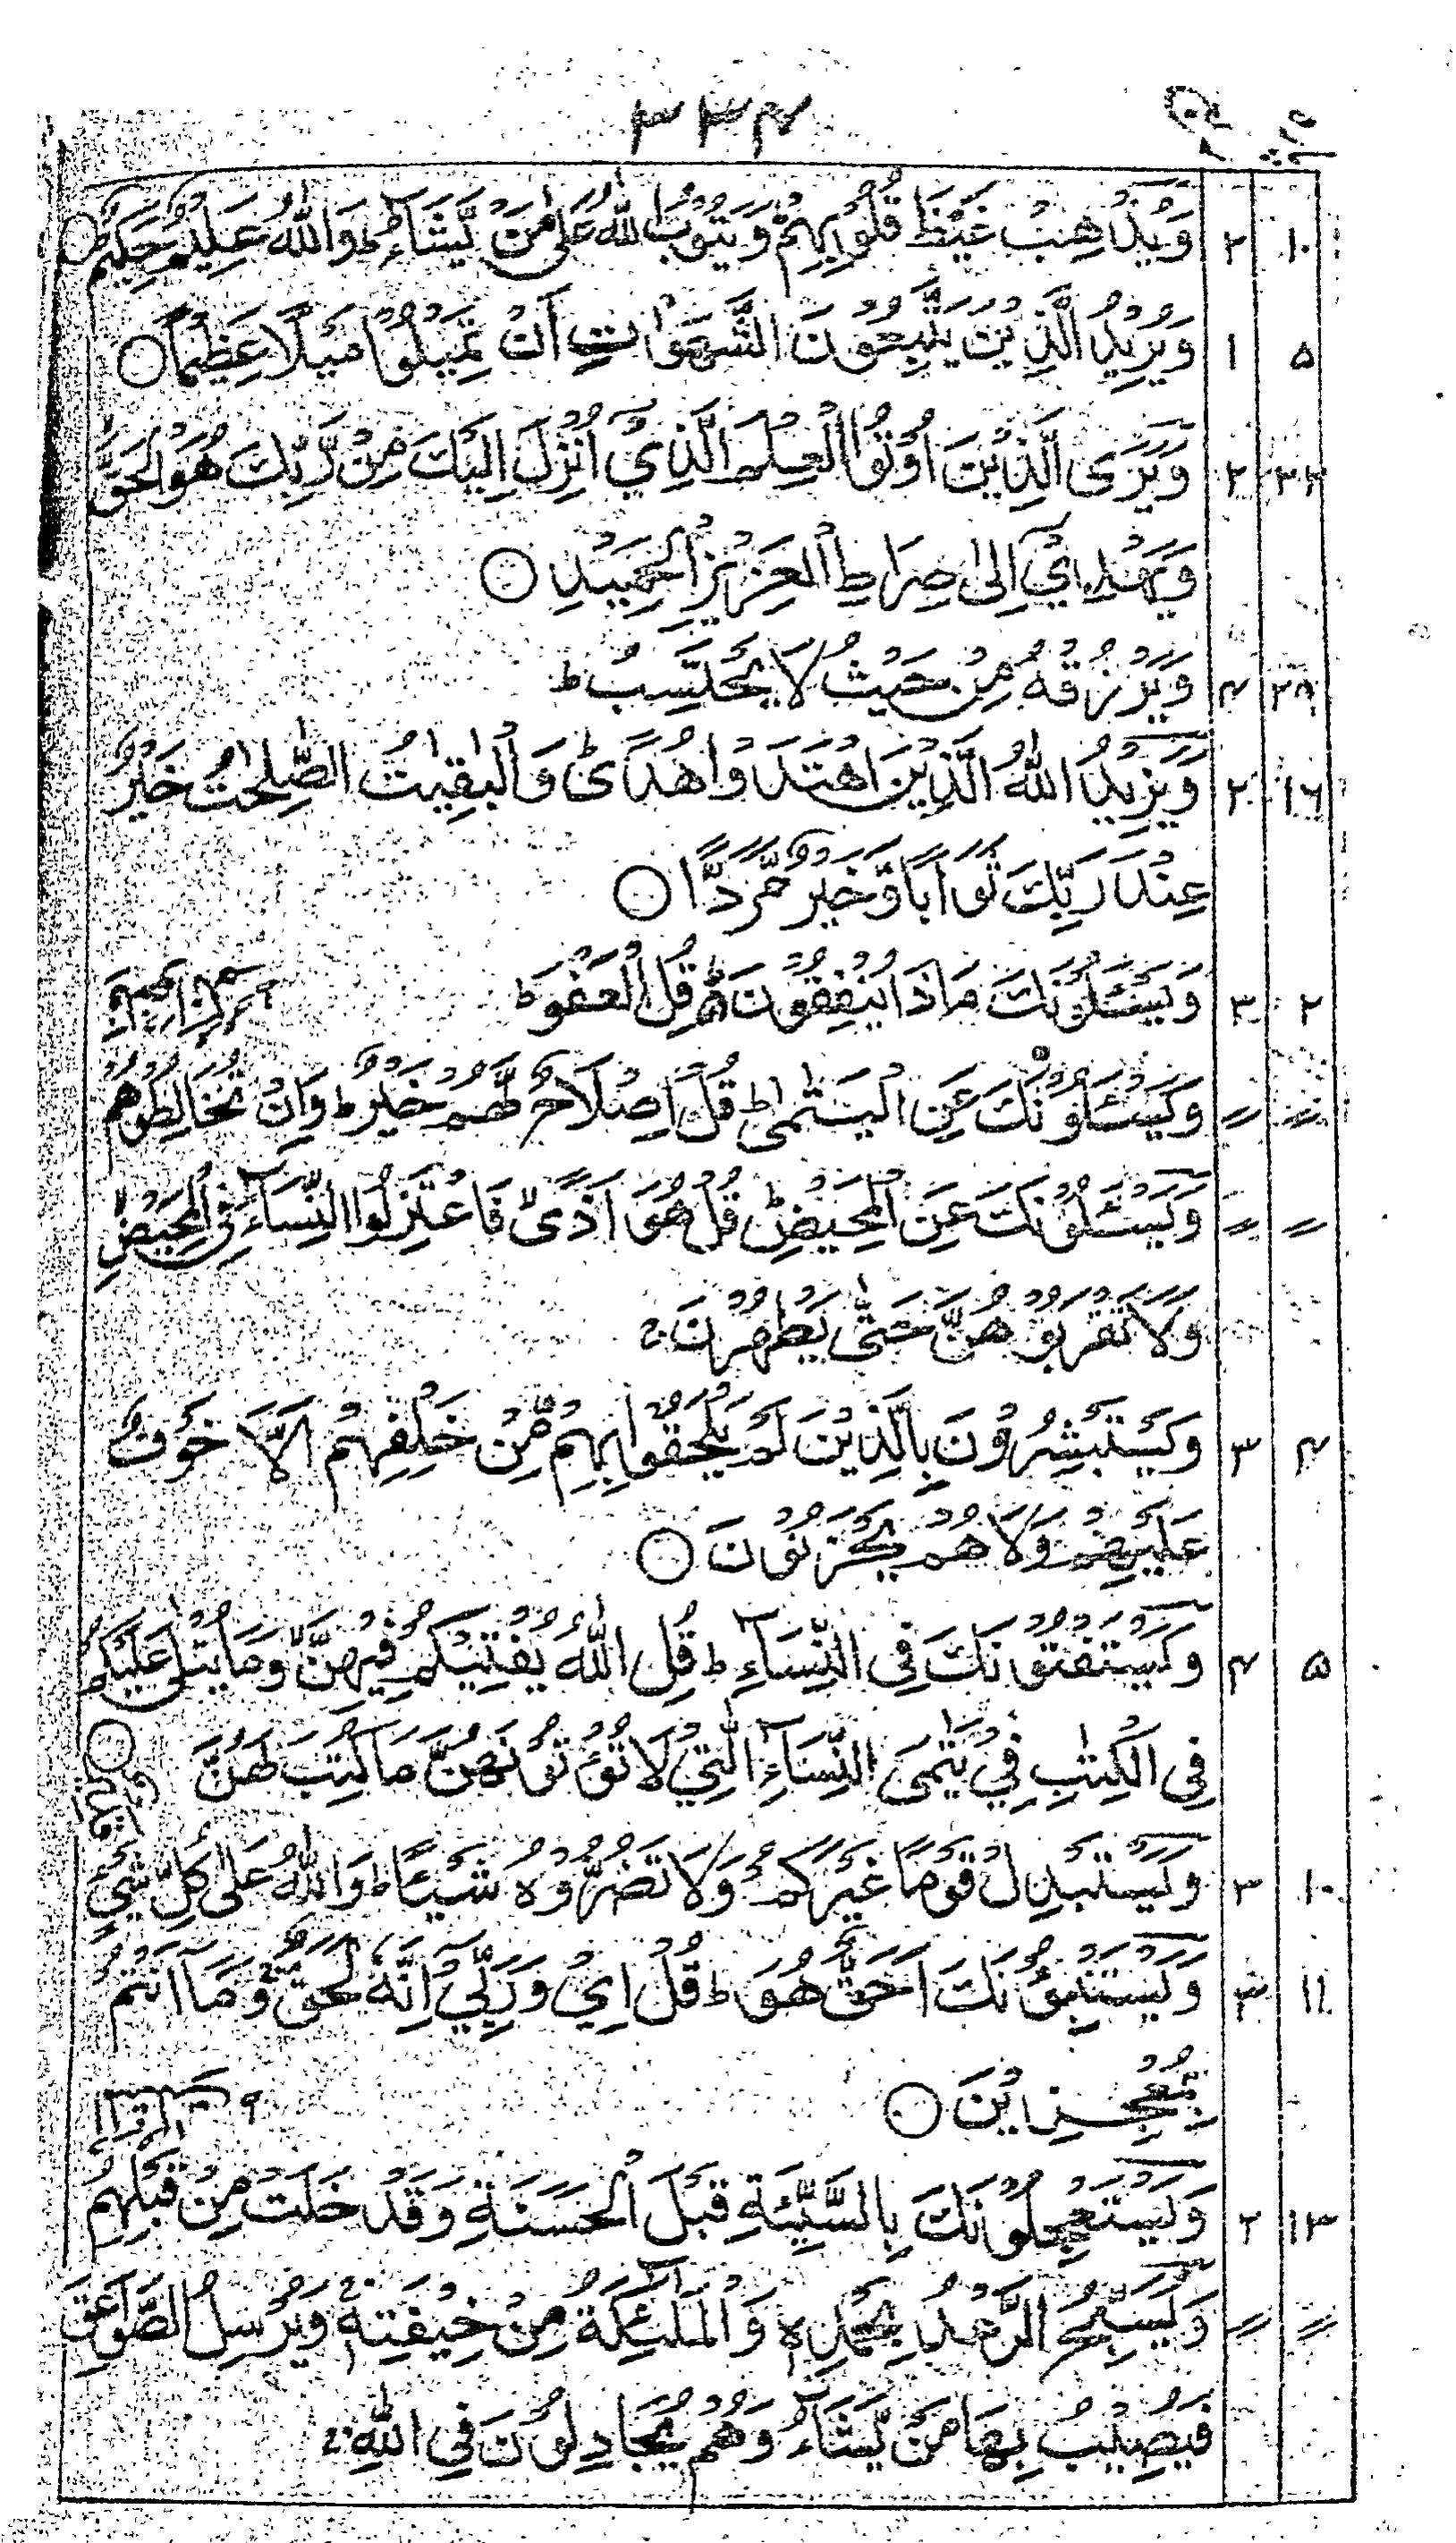 ۳۳۴
۱۰ ۲ وَيُذْهِبْ غَيْظَ قُلُوْبِهِمْ وَيَتُوْبُ اللّٰهُ عَلٰى مَنْ يَّشَآءُ ط وَاللّٰهُ عَلِيْمٌ حَكِيْمٌ ○
۵ ۱ وَيُرِيْدُ الَّذِيْنَ يَتَّبِعُوْنَ الشَّهَوٰاتِ اَنْ تَمِيْلُوْا مَيْلًا عَظِيْمًا ○
۲۲ ۲ وَيَرَى الَّذِيْنَ اُوْتُوا الْعِلْمَ الَّذِيْٓ اُنْزِلَ اِلَيْكَ مِنْ رَّبِّكَ هُوَ الْحَقَّ
وَيَهْدِيْٓ اِلٰى صِرَاطِ الْعَزِيْزِ الْحَمِيْدِ ○
۲۸ ۴ وَيَرْزُقْهُ مِنْ حَيْثُ لَا يَحْتَسِبُ ط
۱۶ ۲ وَيَزِيْدُ اللّٰهُ الَّذِيْنَ اهْتَدَوْا هُدًى ط وَالْبٰقِيٰتُ الصّٰلِحٰتُ خَيْرٌ
عِنْدَ رَبِّكَ ثَوَابًا وَّخَيْرٌ مَّرَدًّا ○
۲ ۳ وَيَسْئَلُوْنَكَ مَاذَا يُنْفِقُوْنَ ط قُلِ الْعَفْوَ ط
〃 〃 وَيَسْئَلُوْنَكَ عَنِ الْيَتٰمٰى ط قُلْ اِصْلَاحٌ لَّهُمْ خَيْرٌ ط وَاِنْ تُخَالِطُوْهُمْ
〃 〃 وَيَسْئَلُوْنَكَ عَنِ الْمَحِيْضِ ط قُلْ هُوَ اَذًى فَاعْتَزِلُوا النِّسَآءَ فِى الْمَحِيْضِ
وَلَا تَقْرَبُوْهُنَّ حَتّٰى يَطْهُرْنَ ج
۴ ۳ وَيَسْتَبْشِرُوْنَ بِالَّذِيْنَ لَمْ يَلْحَقُوْا بِهِمْ مِّنْ خَلْفِهِمْ اَلَّا خَوْفٌ
عَلَيْهِمْ وَلَا هُمْ يَحْزَنُوْنَ ○
۵ ۴ وَيَسْتَفْتُوْنَكَ فِى النِّسَآءِ ط قُلِ اللّٰهُ يُفْتِيْكُمْ فِيْهِنَّ وَمَا يُتْلٰى عَلَيْكُمْ
فِى الْكِتٰبِ فِيْ يَتٰمَى النِّسَآءِ الّٰتِيْ لَا تُؤْتُوْنَهُنَّ مَا كُتِبَ لَهُنَّ
۱۰ ۳ وَيَسْتَبْدِلْ قَوْمًا غَيْرَكُمْ وَلَا تَضُرُّوْهُ شَيْئًا ط وَاللّٰهُ عَلٰى كُلِّ شَيْءٍ
۱۱ وَيَسْتَنْبِئُوْنَكَ اَحَقٌّ هُوَ ط قُلْ اِيْ وَرَبِّيْٓ اِنَّهٗ لَحَقٌّ وَمَآ اَنْتُمْ
بِمُعْجِزِيْنَ ○
۱۳ ۲ وَيَسْتَعْجِلُوْنَكَ بِالسَّيِّئَةِ قَبْلَ الْحَسَنَةِ وَقَدْ خَلَتْ مِنْ قَبْلِهِمُ
〃 〃 وَيُسَبِّحُ الرَّعْدُ بِحَمْدِهٖ وَالْمَلٰٓئِكَةُ مِنْ خِيْفَتِهٖ ج وَيُرْسِلُ الصَّوَاعِقَ
فَيُصِيْبُ بِهَا مَنْ يَّشَآءُ وَهُمْ يُجَادِلُوْنَ فِى اللّٰهِ ج